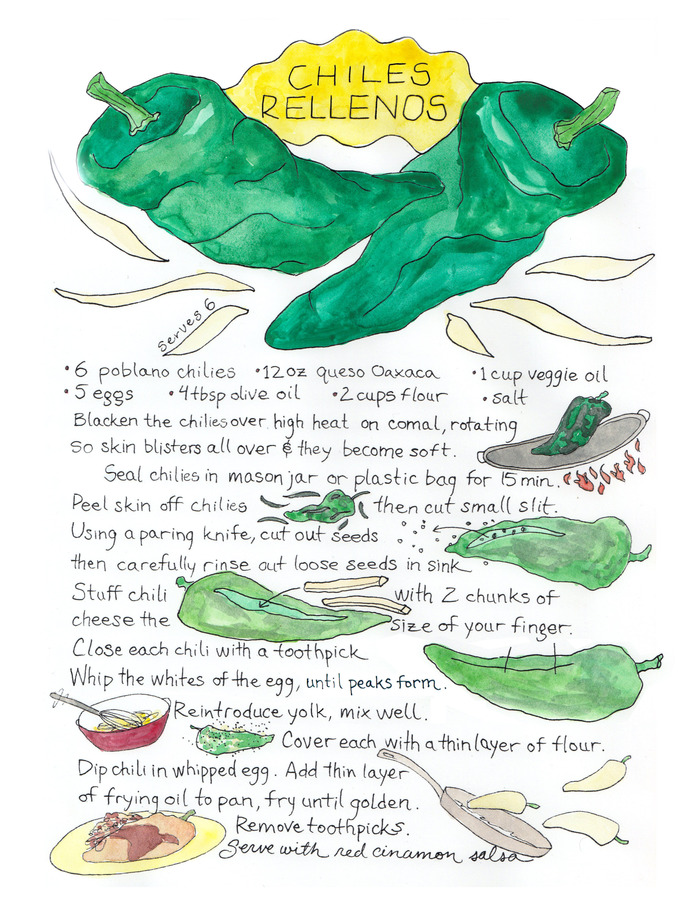 CHILES
RELLENOS
serves 6
• 6 poblano chilies • 12oz queso Oaxaca • 1 cup veggie oil
• 5 eggs • 4 tbsp olive oil • 2 cups flour • salt
Blacken the chilies over high heat on comal, rotating
so skin blisters all over & they become soft.
Seal chilies in mason jar or plastic bag for 15 min.
Peel skin off chilies then cut small slit.
Using a paring knife, cut out seeds
then carefully rinse out loose seeds in sink
Stuff chili with 2 chunks of
cheese the size of your finger.
Close each chili with a toothpick
Whip the whites of the egg, until peaks form.
Reintroduce yolk, mix well.
Cover each with a thin layer of flour.
Dip chili in whipped egg. Add thin layer
of frying oil to pan, fry until golden.
Remove toothpicks.
Serve with red cinamon salsa